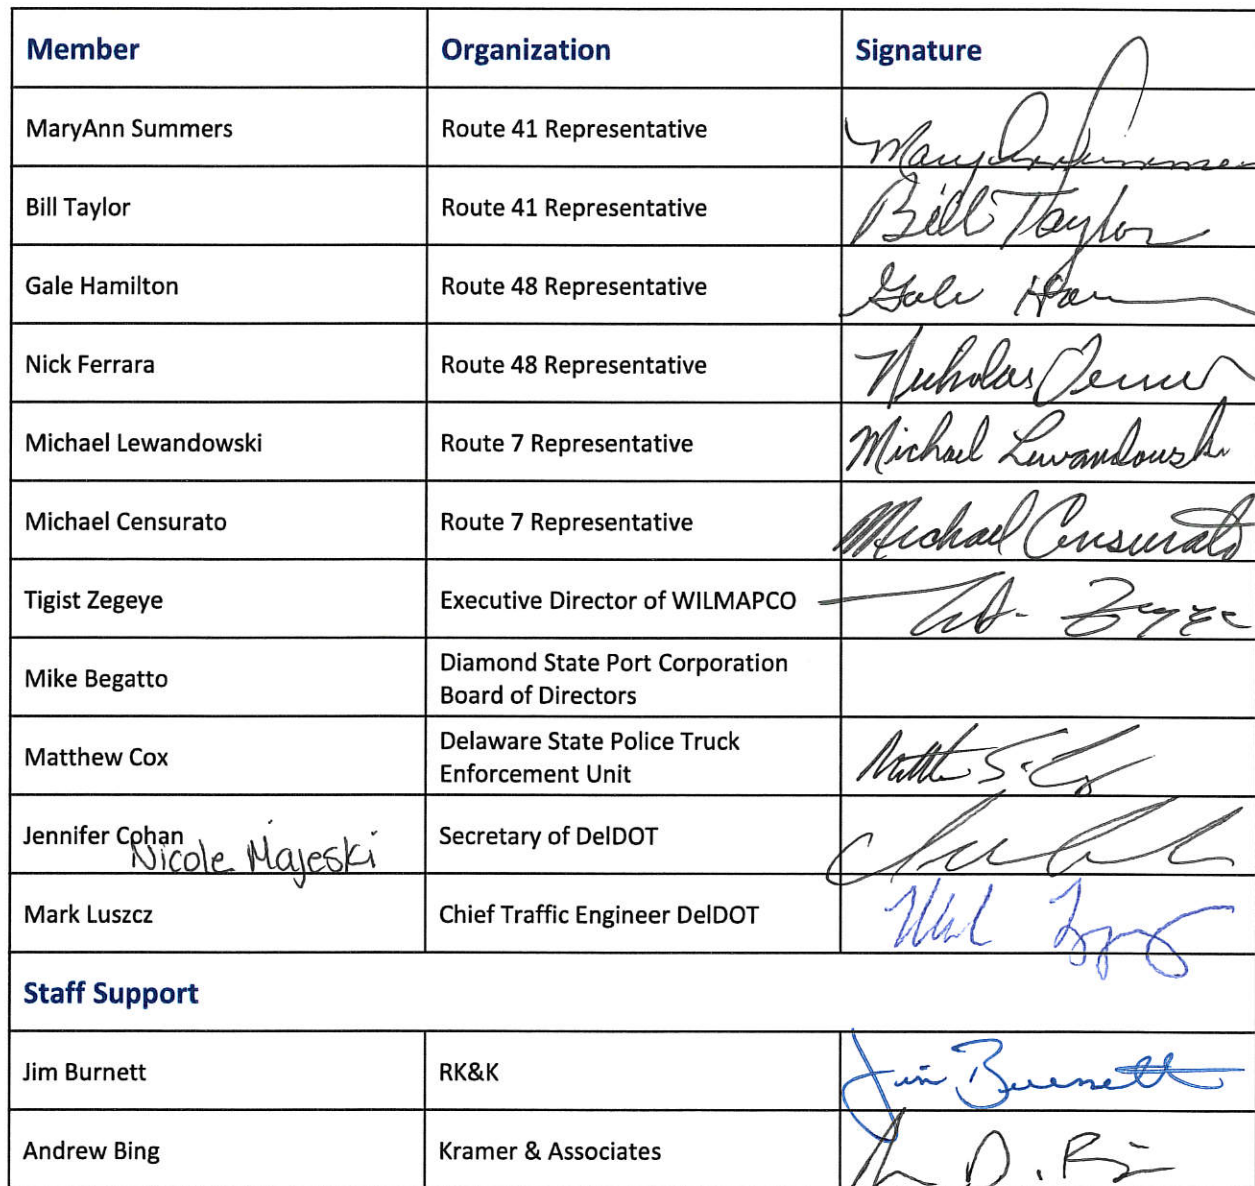 Member Organization Signature
MaryAnn Summers Route 41 Representative Mary Ann Summers
Bill Taylor Route 41 Representative Bill Taylor
Gale Hamilton Route 48 Representative Gale
Nick Ferrara Route 48 Representative Nicholas
Michael Lewandowski Route 7 Representative Michael Lewandowski
Michael Censurato Route 7 Representative Michael Censurato
Tigist Zegeye Executive Director of WILMAPCO Zegeye
Mike Begatto Diamond State Port Corporation
Board of Directors
Matthew Cox Delaware State Police Truck
Enforcement Unit
Jennifer Cohan Secretary of DelDOT
Nicole Majeski
Mark Luszcz Chief Traffic Engineer DelDOT
Staff Support
Jim Burnett RK&K Jim Burnett
Andrew Bing Kramer & Associates